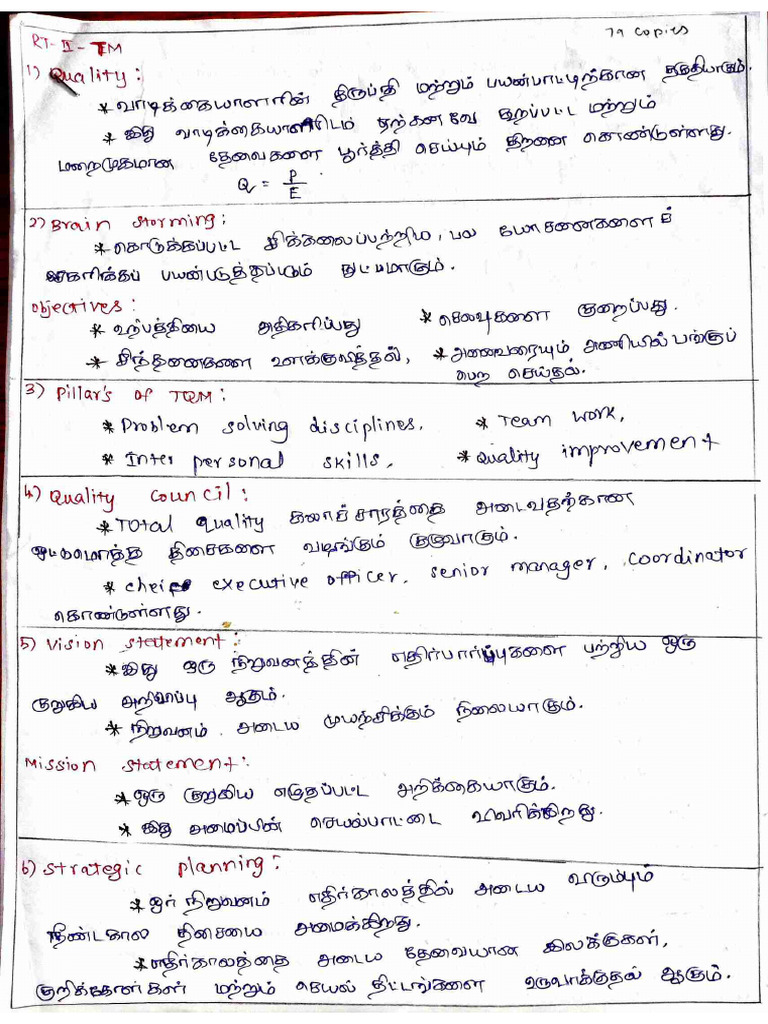 79 copies
RT-II-TM
1) Quality:
* வாடிக்கையாளரின் திருப்தி மற்றும் பயன்பாட்டிற்கான தகுதியாகும்.
* இது வாடிக்கையாளரிடம் ஏற்கனவே குறப்பட்ட மற்றும்
மறைமுகமான தேவைகளை பூர்த்தி செய்யும் திறனை கொண்டுள்ளது.
Q = P/E
2) Brain storming:
* கொடுக்கப்பட்ட சிக்கலைப்பற்றிய, பல யோசனைகளைச்
சேகரிக்கப் பயன்படுத்தப்படும் நுட்பமாகும்.
Objectives:
* உற்பத்தியை அதிகரிப்பது * செலவுகளை குறைப்பது.
* சிந்தனைகளை ஊக்குவித்தல், * அனைவரையும் அணியில் பங்குப்
பெற செய்தல்.
3) Pillar's of TQM:
* Problem solving disciplines, * Team work,
* Inter personal skills, * Quality improvement
4) Quality Council:
* Total quality கலாச்சாரத்தை அடைவதற்கான
ஒட்டுமொத்த திசைகளை வழங்கும் குழுவாகும்.
* cheif executive officer, senior manager, coordinator
கொண்டுள்ளது.
5) Vision statement:
* இது ஒரு நிறுவனத்தின் எதிர்பார்ப்புகளை பற்றிய ஒரு
குறுகிய அறிவிப்பு ஆகும்.
* நிறுவனம் அடைய முயற்சிக்கும் நிலையாகும்.
Mission statement:
* ஒரு குறுகிய எழுதப்பட்ட அறிக்கையாகும்.
* இது அமைப்பின் செயல்பாட்டை விவரிக்கிறது.
6) Strategic planning:
* ஓர் நிறுவனம் எதிர்காலத்தில் அடைய விரும்பும்
நீண்டகால திசையை அமைக்கிறது.
* எதிர்காலத்தை அடைய தேவையான இலக்குகள்,
குறிக்கோள்கள் மற்றும் செயல் திட்டங்களை உருவாக்குதல் ஆகும்.